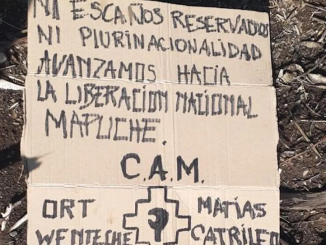 NI ESCAÑOS RESERVADOS
NI PLURINACIONALIDAD
AVANZAMOS HACIA
LA LIBERACION NATIONAL
MAPUCHE.
C.A.M.
ORT MATÍAS
WENTECHE CATRILEO